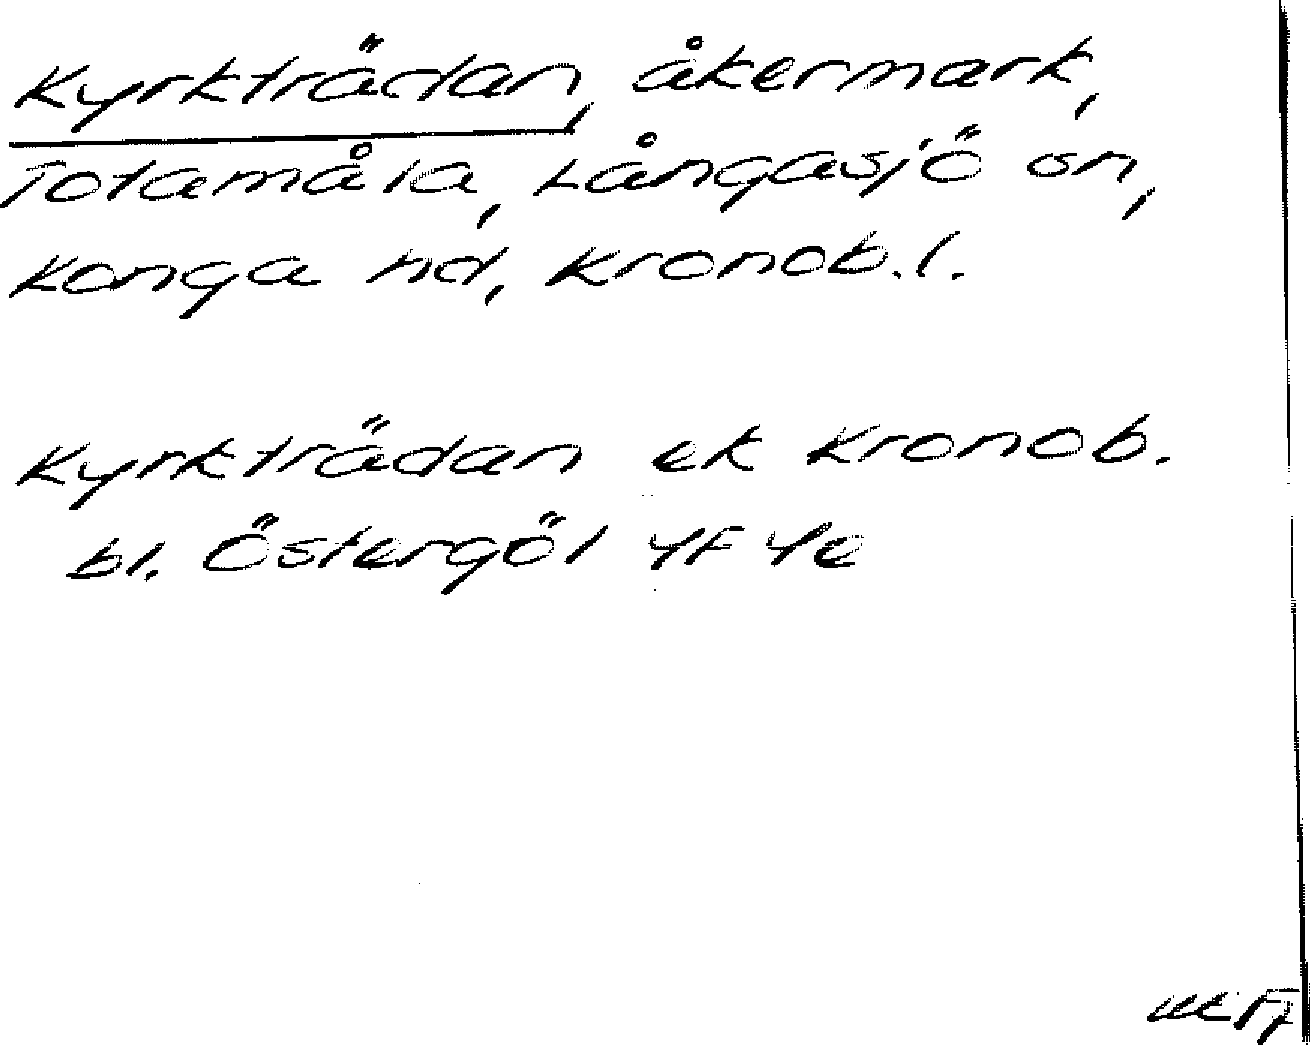 Kyrkträdan, åkermark,
Totamåla, Långasjö sn,
Konga hd, Kronob. l.
Kyrkträdan ek Kronob.
bl. Östergöl 4F 4e